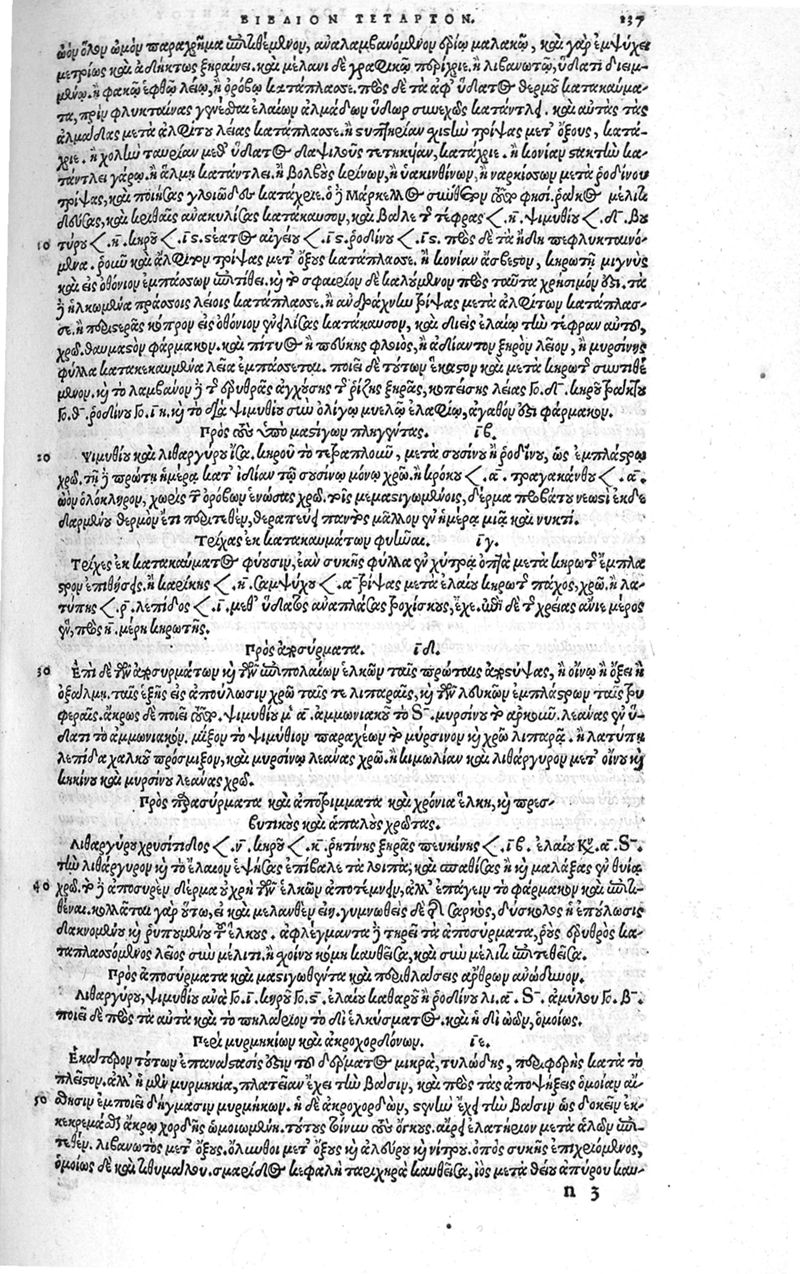 ΒΙΒΛΙΟΝ ΤΕΤΑΡΤΟΝ. 237
ὠὸν ὅλον ὠμὸν παραχρῆμα ἐπιτιθέμενον, ἀναλαμβανόμενον ἐρίῳ μαλακῷ, καὶ γὰρ ἐμψύχει
μετρίως καὶ ἀδήκτως ξηραίνει. καὶ μέλανι δὲ γραφικῷ περίχριε. ἢ λιβανωτῷ, ὕδατι διειμ-
μένῳ. ἢ φακῷ ἑφθῷ λείῳ, ἢ ὀρόβῳ κατάπλασσε. πρὸς δὲ τὰ ἀφ' ὕδατος θερμοῦ κατακαύμα-
τα, πρὶν φλυκταίνας γενέσθαι ἐλαιῶν ἁλμάδων ὕδωρ συνεχῶς κατάντλει. καὶ αὐτὰς τὰς
ἁλμάδας μετὰ ἀλφίτου λείας κατάπλασσε. ἢ στυπτηρίαν σχιστὴν τρίψας μετ' ὄξους, κατά-
χριε. ἢ χολὴν ταυρείαν μεθ' ὕδατος δαψιλοῦς τετηκυῖαν, κατάχριε. ἢ κονίαν στακτὴν κα-
τάντλει γάρῳ. ἢ ἅλμῃ κατάντλει. ἢ βολβοὺς κρίνων, ἢ ὑακινθίνων, ἢ ναρκίσσων μετὰ ῥοδίνου
τρίψας, καὶ ποιήσας γλοιῶδες κατάχριε. ὁ δὲ Μάρκελλος σύνθετον τοῦτο φησί. μέλιτι
δεύσας, καὶ κριθαῖς ἀνακυλίσας κατάκαυσον, καὶ βάλε τῆς τέφρας < . η. ψιμυθίου < . δ. βου
10 τύρου < . η. κηροῦ < . ις. στέατος αἰγείου < . ις. ῥοδίνου < . ις. πρὸς δὲ τὰ ἤδη πεφλυκταινώ-
μένα. καὶ ἄλφιτον τρίψας μετ' ὄξους κατάπλασσε. ἢ κονίαν ἄσβεστον, κηρωτῇ μιγνὺς
καὶ εἰς ὀθόνιον ἐμπάσσων ἐπιτίθει. καὶ τὸ σφαιρίον δὲ καλούμενον πρὸς ταῦτα χρήσιμόν ἐστι. τὰ
δὲ ἡλκωμένα πράσοις λείοις κατάπλασσε. ἢ ἀνδράχνην τρίψας μετὰ ἀλφίτων κατάπλασ-
σε. ἢ περιστερᾶς κόπρον εἰς ὀθόνιον ἐνελίξας κατάκαυσον, καὶ διεὶς ἐλαίῳ τὴν τέφραν αὐτοῦ,
χρῶ. θαυμαστὸν φάρμακον. καὶ πίτυος ἢ πεύκης φλοιὸς, ἢ ἀδίαντον ξηρὸν λεῖον, ἢ μυρσίνης
φύλλα κατακεκαυμένα λεῖα ἐμπάσσεται. ποιεῖ δὲ τούτων ἕκαστον καὶ μετὰ κηρωτῆς συντιθέ
μενον. καὶ τὸ λαμβάνον δὲ τῆς ἐρυθρᾶς ἀγχούσης τῆς ῥίζης ξηρᾶς, κοπείσης λείας Γο. δ. κηροῦ
Γο. θ. ῥοδίνου Γο. ιη. καὶ τὸ διὰ ψιμυθίου σὺν ὀλίγῳ μυελῷ ἐλαφείῳ, ἀγαθόν ἐστι φάρμακον.
Πρὸς τοὺς ὑπὸ μαστίγων πληγέντας. ιβ.
20 Ψιμυθίου καὶ λιθαργύρου ἴσα. κηροῦ τὸ τετραπλοῦν, μετὰ σουσίνου ἢ ῥοδίνου, ὡς ἐμπλάστρῳ
χρῶ. τῇ δὲ πρώτῃ ἡμέρᾳ κατ' ἰδίαν τῷ σουσίνῳ μόνῳ χρῶ. ἢ κρόκου < . α. τραγακάνθου < . α.
ὠὸν ὁλόκληρον, χωρὶς τῶν ὀρόβων ἑνώσας χρῶ. τοῖς μεμαστιγωμένοις, δέρμα προβάτου νεωστὶ ἐκδε
δαρμένου θερμὸν ἔτι περιτεθὲν, θεραπεύει παντὸς μᾶλλον ἐν ἡμέρᾳ μιᾷ καὶ νυκτί.
Τρίχας ἐκ κατακαυμάτων φυῆναι. ιγ.
Τρίχες ἐκ κατακαύματος φύουσιν, ἐὰν συκῆς φύλλα ἐν χύτρᾳ ὀπτὰ μετὰ κηρωτῆς ἔμπλα
στρον ἐπιθήσῃς. ἢ καρίκης < . η. σαμψύχου < . α. τρίψας μετὰ ἐλαίου κηρωτῆς πάχος, χρῶ. ἢ λα-
τύπης < . ρ. λεπίδος < . ι. μεθ' ὕδατος ἀναπλάσας τροχίσκους, ἔχε. ἐπὶ δὲ τῆς χρείας ἀνίε μέρος
ἓν, πρὸς η. μέρη κηρωτῆς.
Πρὸς ἀποσύρματα. ιδ.
30 Ἐπὶ δὲ τῶν ἀποσυρμάτων καὶ τῶν ἐπιπολαίων ἑλκῶν ταῖς πρώταις ἀποστύψας, ἢ οἴνῳ ἢ ὄξει ἢ
ὀξάλμῃ. ταῖς ἑξῆς εἰς ἀπούλωσιν χρῶ ταῖς τε λιπαραῖς, καὶ τῶν λευκῶν ἐμπλάστρων ταῖς τρυ
φεραῖς. ἄκρως δὲ ποιεῖ τοῦτο. ψιμυθίου α. ἀμμωνιακοῦ τὸ S. μυρσίνου τὸ ἀρκοῦν. λεάνας ἐν ὕ-
δατι τὸ ἀμμωνιακὸν. μῖξον τὸ ψιμύθιον παραχέων τὸ μύρσινον καὶ χρῶ λιπαρᾷ. ἢ λατύπῃ
λεπίδα χαλκοῦ πρόσμιξον, καὶ μυρσίνῳ λεάνας χρῶ. ἢ κιμωλίαν καὶ λιθάργυρον μετ' οἴνου καὶ
κικίνου καὶ μυρσίνου λεάνας χρῶ.
Πρὸς ἀποσύρματα καὶ ἀποτρίμματα καὶ χρόνια ἕλκη, καὶ πρεσ-
βυτικοὺς καὶ ἁπαλοὺς χρῶτας.
Λιθαργύρου χρυσίτιδος < . ν. κηροῦ < . κ. ῥητίνης ξηρᾶς πευκίνης < . ιβ. ἐλαίου Κο. α. S.
τὴν λιθάργυρον καὶ τὸ ἔλαιον ἑψήσας ἐπίβαλε τὰ λοιπά, καὶ σπαθίσας ἢ καὶ μαλάξας ἐν θυίᾳ
40 χρῶ. τὸ δὲ ἀποσυρὲν δέρμα οὐ χρὴ τῶν ἑλκῶν ἀποτέμνειν, ἀλλ' ἐπάγειν τὸ φάρμακον καὶ ἐπιτι-
θέναι. κολλᾶται γὰρ οὕτω, εἰ καὶ μελανθὲν εἴη. γυμνωθείσης δὲ τῆς σαρκὸς, δύσκολος ἡ ἐπούλωσις
δακνομένου καὶ ῥυπουμένου τοῦ ἕλκους. ἀφλέγμαντα δὲ τηρεῖ τὰ ἀποσύρματα, ῥοῦς ἐρυθρὸς κα-
ταπλασσόμενος λεῖος σὺν μέλιτι. ἢ χοίνου κόμη καυθεῖσα, καὶ σὺν μέλιτι ἐπιτεθεῖσα.
Πρὸς ἀποσύρματα καὶ μαστιγωθέντα καὶ περιθλάσεις ἄρθρων ἀνώδυνον.
Λιθαργύρου, ψιμυθίου ἀνὰ Γο. ι. κηροῦ Γο. ς. ἐλαίου καθαροῦ ἢ ῥοδίνου λι. α. S. ἀμύλου Γο. β.
ποιεῖ δὲ πρὸς τὰ αὐτὰ καὶ τὸ πηλάριον τὸ δι' ἑλκύσματος. καὶ ἡ δι' ὠῶν, ὁμοίως.
Περὶ μυρμηκίων καὶ ἀκροχορδόνων. ιε.
Ἑκάτερον τούτων ἐπανάστασίς ἐστιν τοῦ δέρματος μικρὰ, τυλώδης, περιφερὴς κατὰ τὸ
πλεῖστον. ἀλλ' ἡ μὲν μυρμηκία, πλατεῖαν ἔχει τὴν βάσιν, καὶ πρὸς τὰς ἀποψήξεις ὁμοίαν αἴ-
50 σθησιν ἐμποιεῖ δήγμασιν μυρμήκων. ἡ δὲ ἀκροχορδὼν, στενὴν ἔχει τὴν βάσιν ὡς δοκεῖν ἐκ-
κεκρεμᾶσθαι ἄκρῳ χορδῆς ὡμοιωμένη. τούτους τοίνυν τοὺς ὄγκους. αἴρει ἐλατήριον μετὰ ἁλῶν ἐπι-
τεθέν. λιβανωτὸς μετ' ὄξους. ὄλυνθοι μετ' ὄξους καὶ ἀλεύρου καὶ νίτρου. ὀπὸς συκῆς ἐπιχριόμενος,
ὁμοίως δὲ καὶ τιθυμάλου. σμαρίδος κεφαλὴ ταριχηρὰ καυθεῖσα, ἰὸς μετὰ θείου ἀπύρου καυ-
n 3